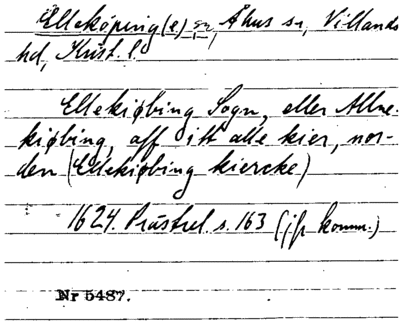 Elleköping(e) sn, Åhus sn, Villands
hd, Krist. l.
Ellekiøbing Sogn, eller Allne-
kiøbing, aff itt alle kier, nor-
den (Ellekiøbing kiercke)
1624. Prästrel. s. 163 (jfr komm.)
Nr 5487.